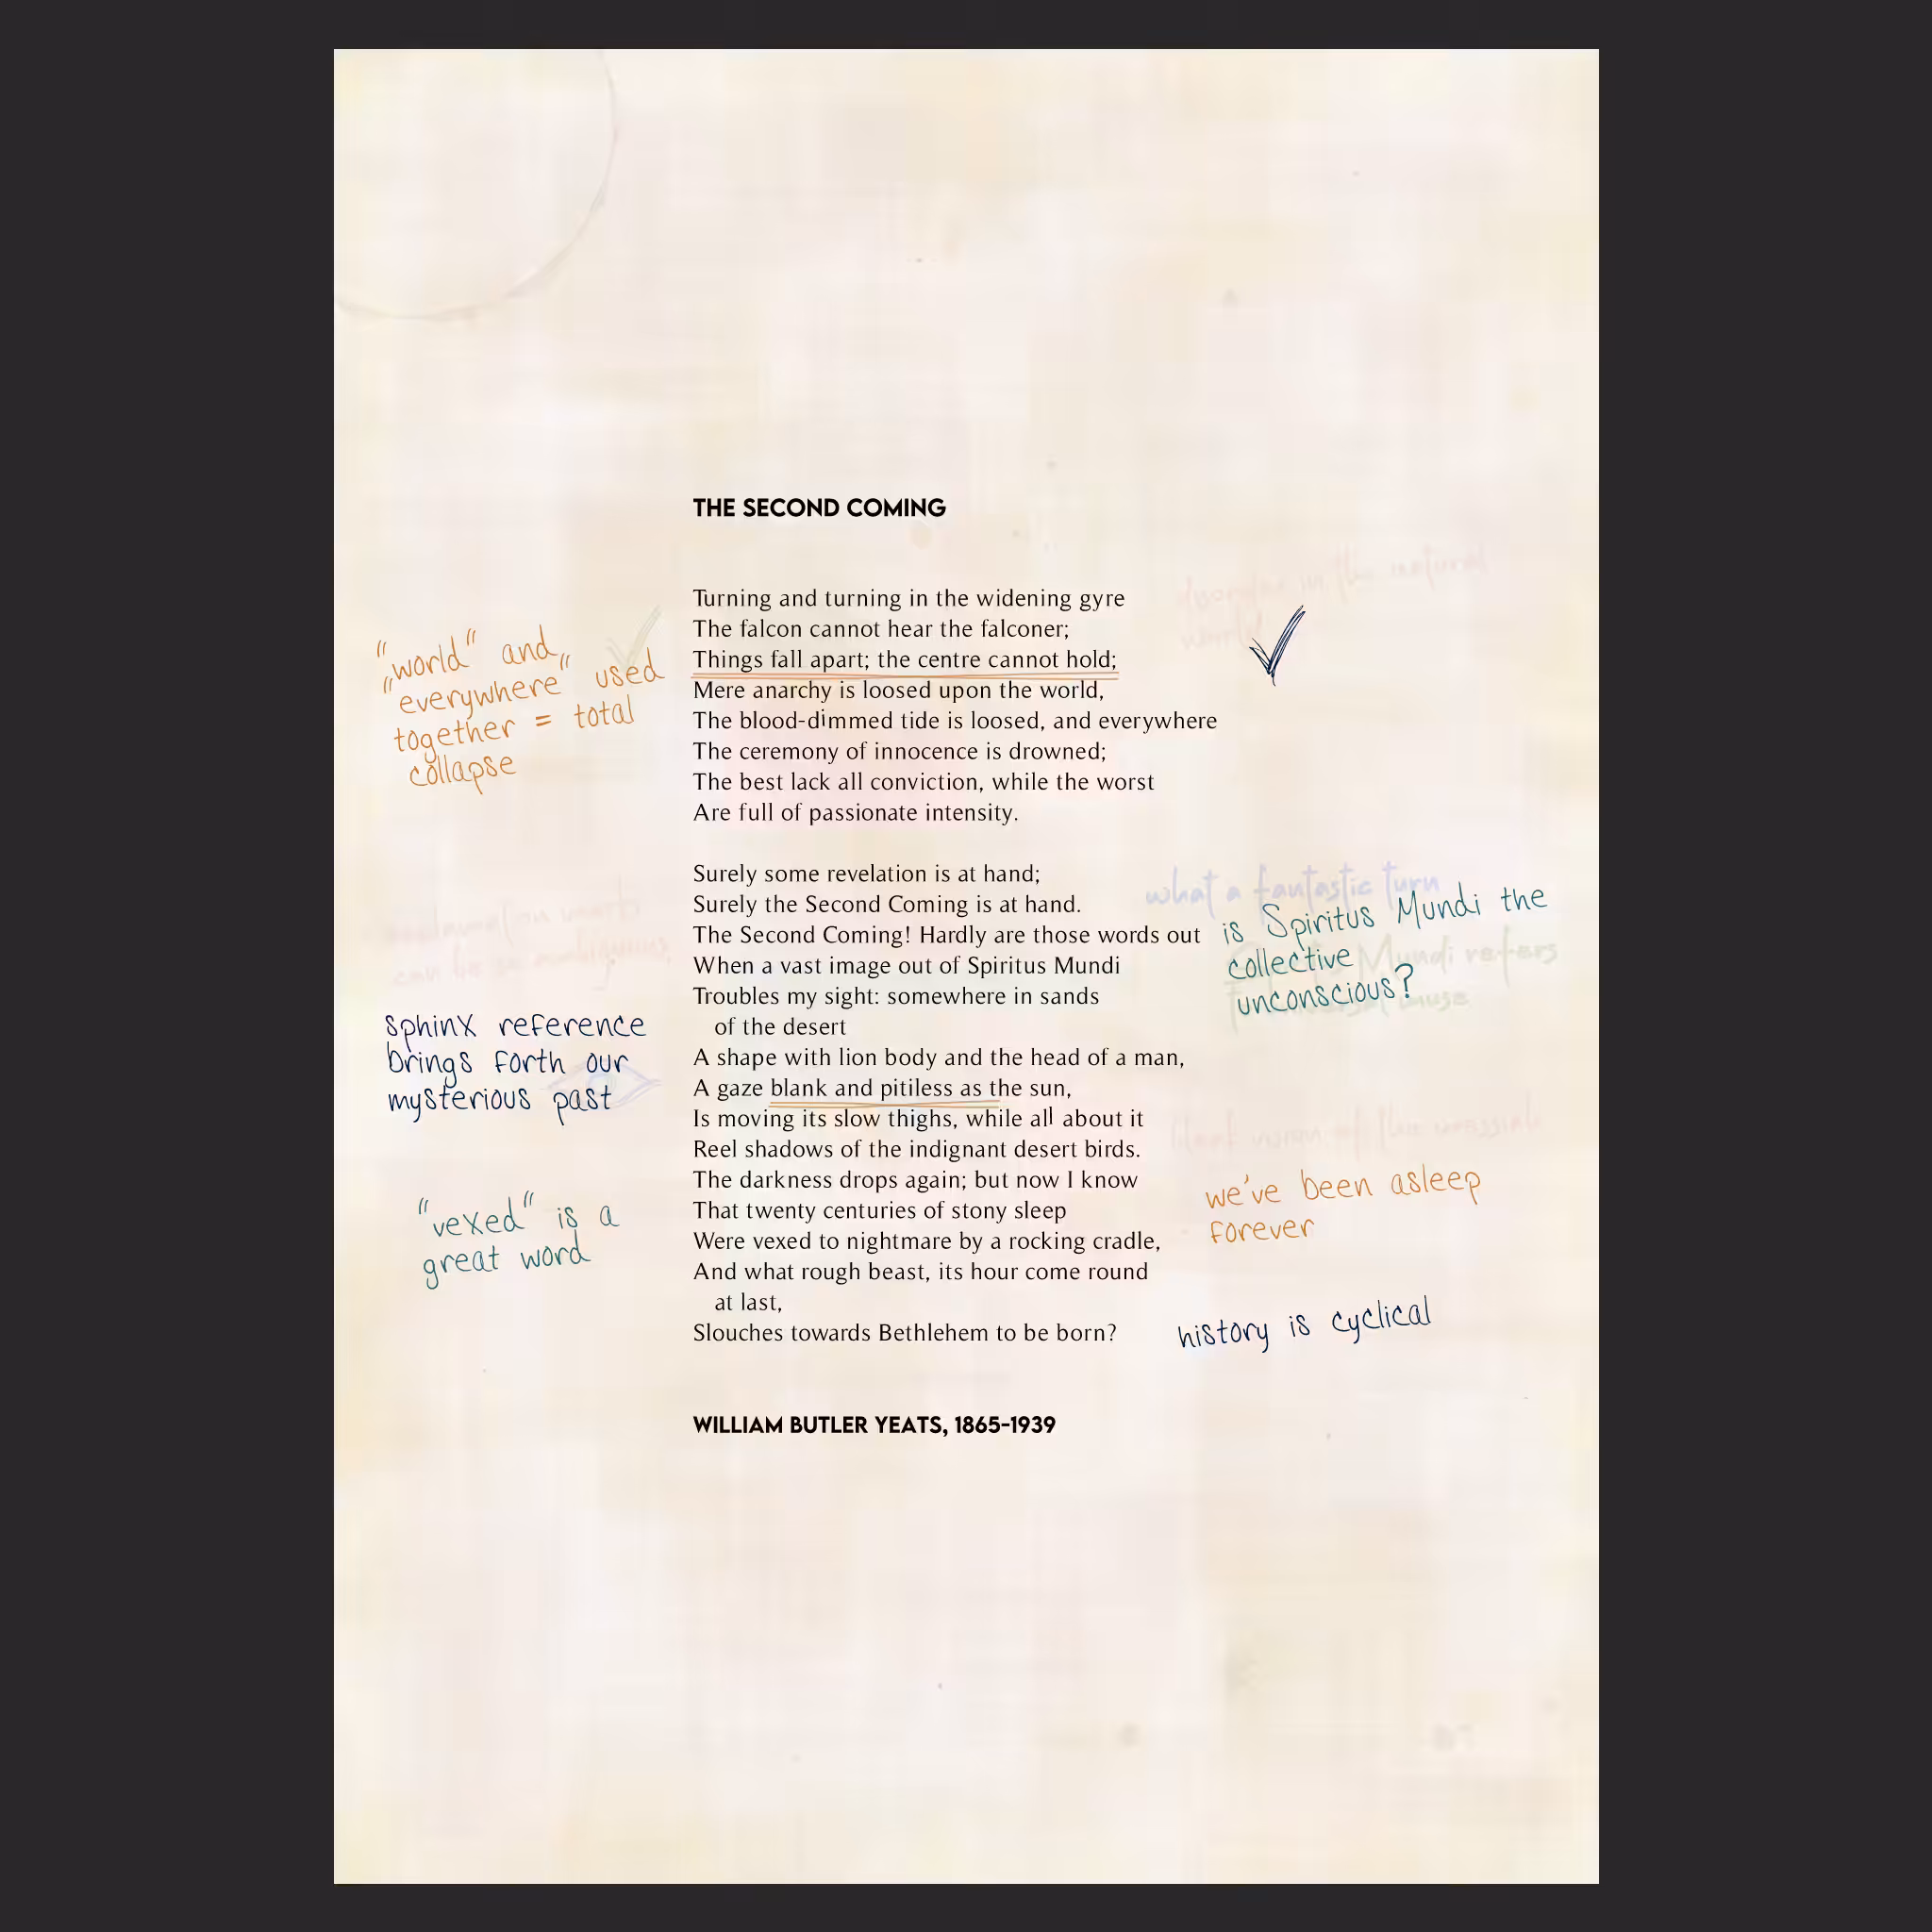 THE SECOND COMING
Turning and turning in the widening gyre
The falcon cannot hear the falconer;
Things fall apart; the centre cannot hold;
Mere anarchy is loosed upon the world,
The blood-dimmed tide is loosed, and everywhere
The ceremony of innocence is drowned;
The best lack all conviction, while the worst
Are full of passionate intensity.
Surely some revelation is at hand;
Surely the Second Coming is at hand.
The Second Coming! Hardly are those words out
When a vast image out of Spiritus Mundi
Troubles my sight: somewhere in sands
of the desert
A shape with lion body and the head of a man,
A gaze blank and pitiless as the sun,
Is moving its slow thighs, while all about it
Reel shadows of the indignant desert birds.
The darkness drops again; but now I know
That twenty centuries of stony sleep
Were vexed to nightmare by a rocking cradle,
And what rough beast, its hour come round
at last,
Slouches towards Bethlehem to be born?
WILLIAM BUTLER YEATS, 1865–1939
"world" and
"everywhere" used
together = total
collapse
sphinx reference
brings forth our
mysterious past
"vexed" is a
great word
in the natural
world
what a fantastic turn
is Spiritus Mundi the
collective
unconscious?
Mundi refers
we've been asleep
forever
history is cyclical
can be